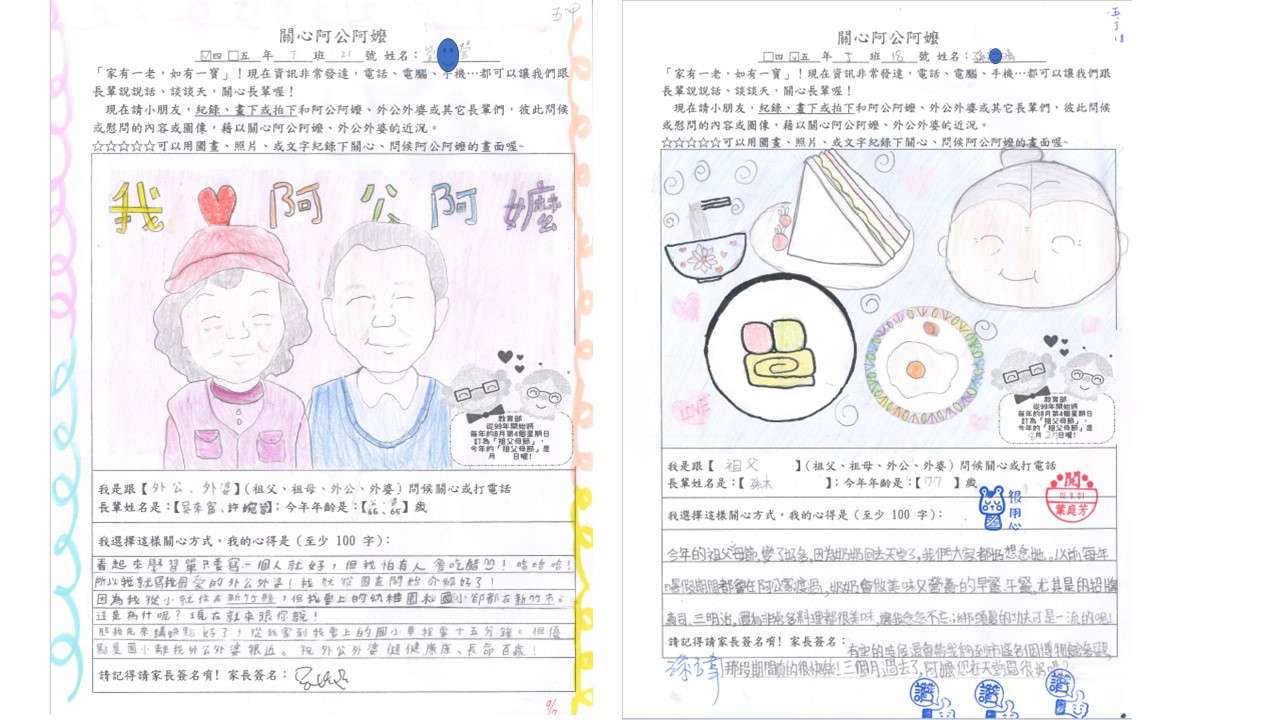 五甲
關心阿公阿嬤
☑四 □五 年 丁 班 21 號 姓名：
「家有一老，如有一寶」！現在資訊非常發達，電話、電腦、手機…都可以讓我們跟
長輩說說話、談談天，關心長輩喔！
現在請小朋友，紀錄、畫下或拍下和阿公阿嬤、外公外婆或其它長輩們，彼此問候
或慰問的內容或圖像，藉以關心阿公阿嬤、外公外婆的近況。
☆☆☆☆☆可以用圖畫、照片、或文字紀錄下關心、問候阿公阿嬤的畫面喔~
我 阿公阿嬤
教育部
從99年開始將
每年的8月第4個星期日
訂為「祖父母節」，
今年的「祖父母節」是
月 日喔！
我是跟【外公、外婆】(祖父、祖母、外公、外婆) 問候關心或打電話
長輩姓名是：【】；今年年齡是：【66、65】歲
我選擇這樣關心方式，我的心得是 (至少 100 字)：
看起來學習單只要寫一個人就好，但我怕有人會吃醋！哈哈哈！
所以我就寫我最愛的外公外婆！我就從圖畫開始介紹好了！
因為我從小就住在新竹縣，但我要上的幼稚園和國小卻都在新竹市。
這是為什呢？現在就來跟你說！
那我先來講缺點好了，從我家到我要上的國小車程要十五分鐘。但優
點是國小離我外公外婆很近。祝外公外婆健健康康、長命百歲！
請記得請家長簽名唷! 家長簽名：
9/7
五
丁
18
關心阿公阿嬤
□四 ☑五 年 丁 班 18 號 姓名：孫 晴
「家有一老，如有一寶」！現在資訊非常發達，電話、電腦、手機…都可以讓我們跟
長輩說說話、談談天，關心長輩喔！
現在請小朋友，紀錄、畫下或拍下和阿公阿嬤、外公外婆或其它長輩們，彼此問候
或慰問的內容或圖像，藉以關心阿公阿嬤、外公外婆的近況。
☆☆☆☆☆可以用圖畫、照片、或文字紀錄下關心、問候阿公阿嬤的畫面喔~
LOVE
教育部
從99年開始將
每年的8月第4個星期日
訂為「祖父母節」，
今年的「祖父母節」是
8月 日喔！
我是跟【 祖父 】(祖父、祖母、外公、外婆) 問候關心或打電話
長輩姓名是：【 孫 】；今年年齡是：【77】歲
很用心
閱
葉庭芳
我選擇這樣關心方式，我的心得是 (至少 100 字)：
今年的祖父母節，變了調，因為奶奶回去天堂了，我們大家都好想念她。以前每年
暑假期間都會在阿公家度過，奶奶會做美味又營養的早餐、午餐，尤其是的招牌
壽司、三明治，還有非常多料理都很美味，讓我念念不忘，的功夫可是一流的呢！
請記得請家長簽名唷! 家長簽名：
有空的時候還會帶我們到市區各個博物館參觀，
那段期間真的很快樂！三個月過去了，阿嬤您在天堂過很好嗎？
讚
讚
讚